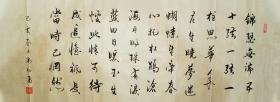 錦瑟無端五
十弦一弦一
柱思華年
莊生曉夢迷
蝴蝶望帝春
心托杜鵑滄
海月明珠有淚
藍田日暖玉生
煙此情可待
成追憶只是
當時已惘然
己亥春